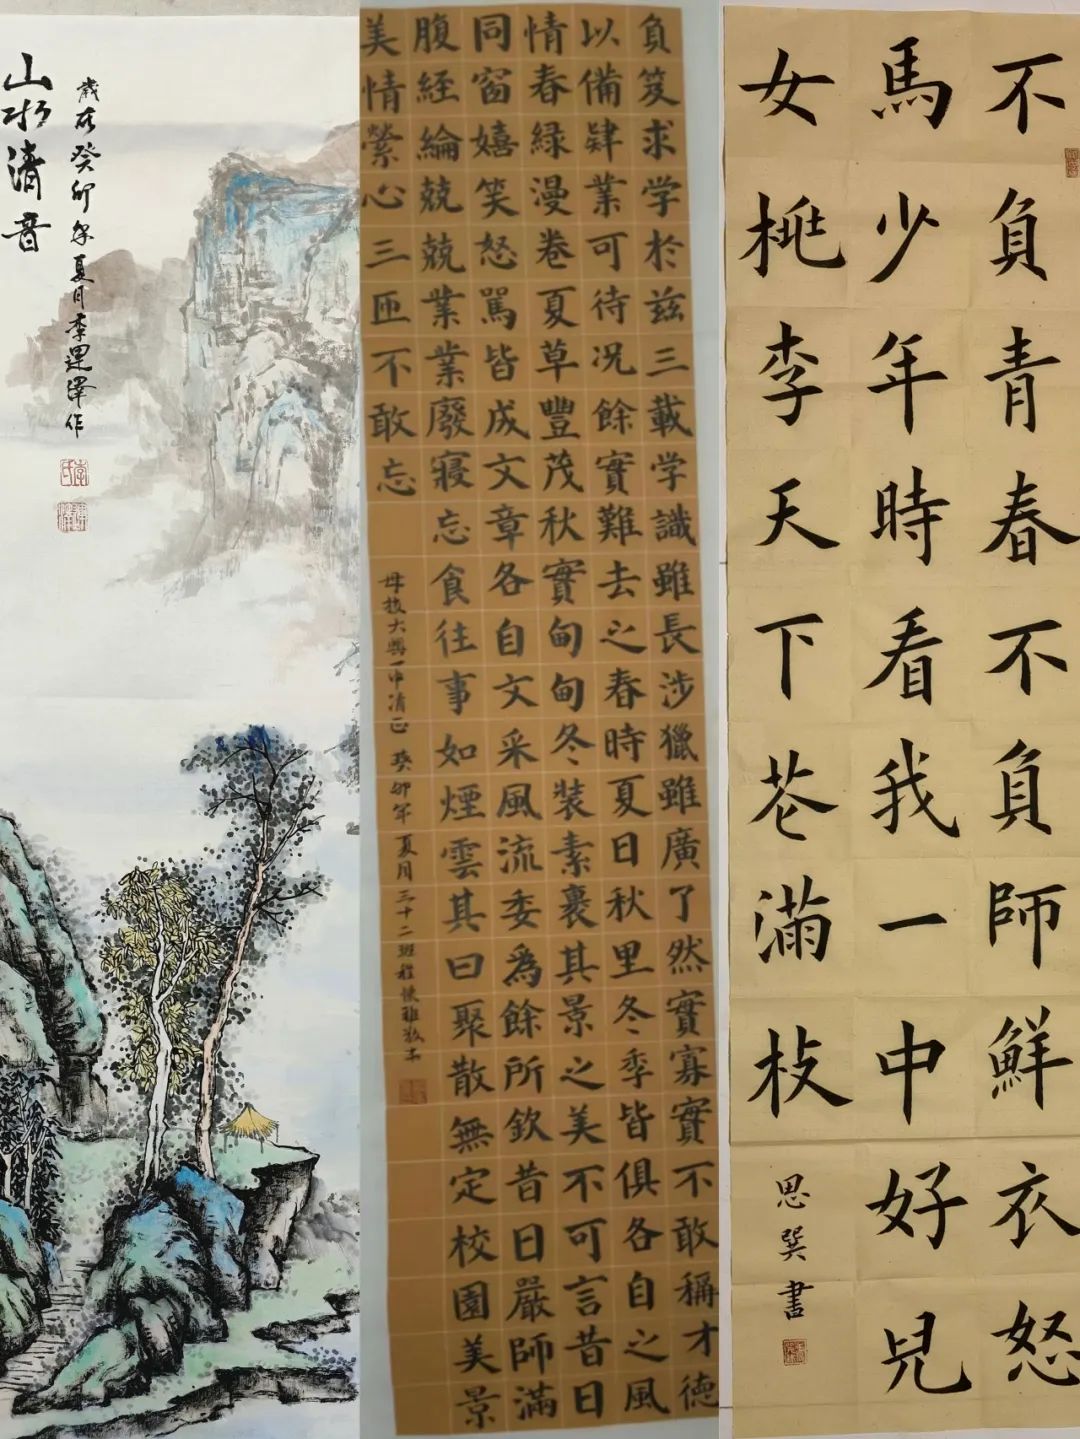 山水清音
歲在癸卯年夏月李運澤作
負笈求学於兹三載学識雖長涉獵雖廣了然實寡實不敢稱才德
以備肄業可待况餘實難去之春時夏日秋里冬季皆俱各自之風
情春緑漫卷夏草豐茂秋實甸甸冬装素裹其景之美不可言昔日
同窗嬉笑怒駡皆成文章各自文采風流委爲餘所欽昔日嚴師滿
腹經綸兢兢業業廢寢忘食往事如煙雲其曰聚散無定校園美景
美情縈心三匝不敢忘
母校大興一中清正 癸卯年夏月三十二班程懷雅敬
不負青春不負師鮮衣怒
馬少年時看我一中好兒
女桃李天下花滿枝
思巽書